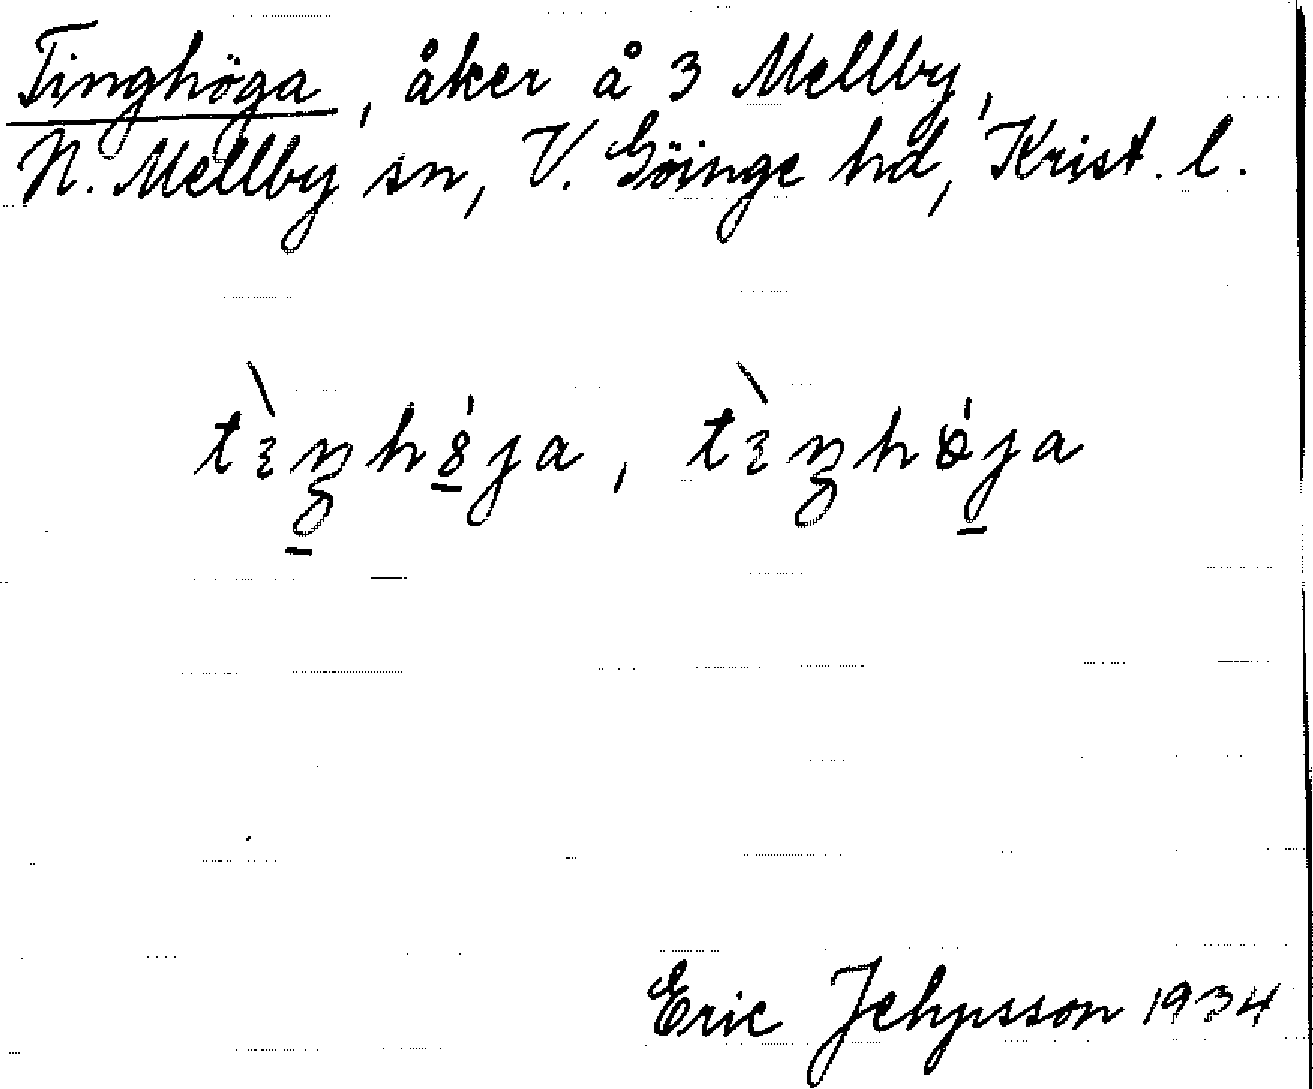 Tinghöga, åker å 3 Mellby,
N. Mellby sn, V. Göinge hd, Krist. l.
Eric Jehpsson 1934